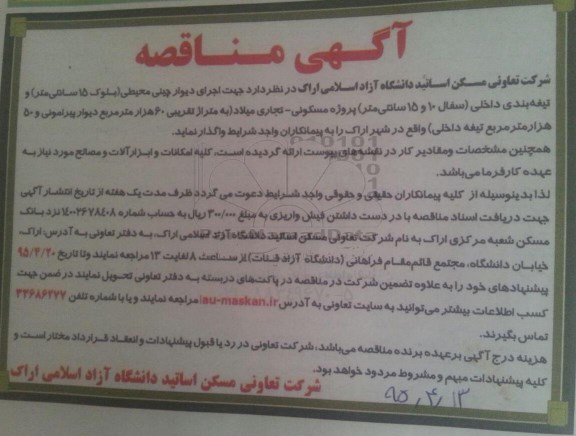 آگهی مناقصه
شرکت تعاونی مسکن اساتید دانشگاه آزاد اسلامی اراک در نظر دارد جهت اجرای دیوار چینی محیطی(بلوک ۱۵ سانتی‌متر) و
تیغه‌بندی داخلی (سفال ۱۰ و ۱۵ سانتی‌متر) پروژه مسکونی- تجاری میلاد(به متراژ تقریبی ۶۰ هزار مترمربع دیوار پیرامونی و ۵۰
هزار مترمربع تیغه داخلی) واقع در شهر اراک را به پیمانکاران واجد شرایط واگذار نماید.
همچنین مشخصات ومقادیر کار در نقشه‌های پیوست ارائه گردیده است، کلیه امکانات و ابزارآلات و مصالح مورد نیاز به
عهده کارفرما می‌باشد.
لذا بدینوسیله از کلیه پیمانکاران حقیقی و حقوقی واجد شرایط دعوت می گردد ظرف مدت یک هفته از تاریخ انتشار آگهی
جهت دریافت اسناد مناقصه با در دست داشتن فیش واریزی به مبلغ ۳۰۰/۰۰۰ ریال به حساب شماره ۱۴۰۰۲۶۷۸۴۰۸ نزد بانک
مسکن شعبه مرکزی اراک به نام شرکت تعاونی مسکن اساتید دانشگاه آزاد اسلامی اراک، به دفتر تعاونی به آدرس: اراک،
خیابان دانشگاه، مجتمع قائم‌مقام فراهانی (دانشگاه آزاد قنات) از ساعت ۸ لغایت ۱۳ مراجعه نمایند وتا تاریخ ۹۵/۴/۲۰
پیشنهادهای خود را به علاوه تضمین شرکت در مناقصه در پاکت‌های دربسته به دفتر تعاونی تحویل نمایند در ضمن جهت
کسب اطلاعات بیشتر می‌توانید به سایت تعاونی به آدرس iau-maskan.ir مراجعه نمایند و یا با شماره تلفن ۳۳۶۸۶۲۷۷
تماس بگیرند.
هزینه درج آگهی برعهده برنده مناقصه می‌باشد، شرکت تعاونی در رد یا قبول پیشنهادات و انعقاد قرارداد مختار است و
کلیه پیشنهادات مبهم و مشروط مردود خواهد بود.
شرکت تعاونی مسکن اساتید دانشگاه آزاد اسلامی اراک
۹۵/۴/۱۳